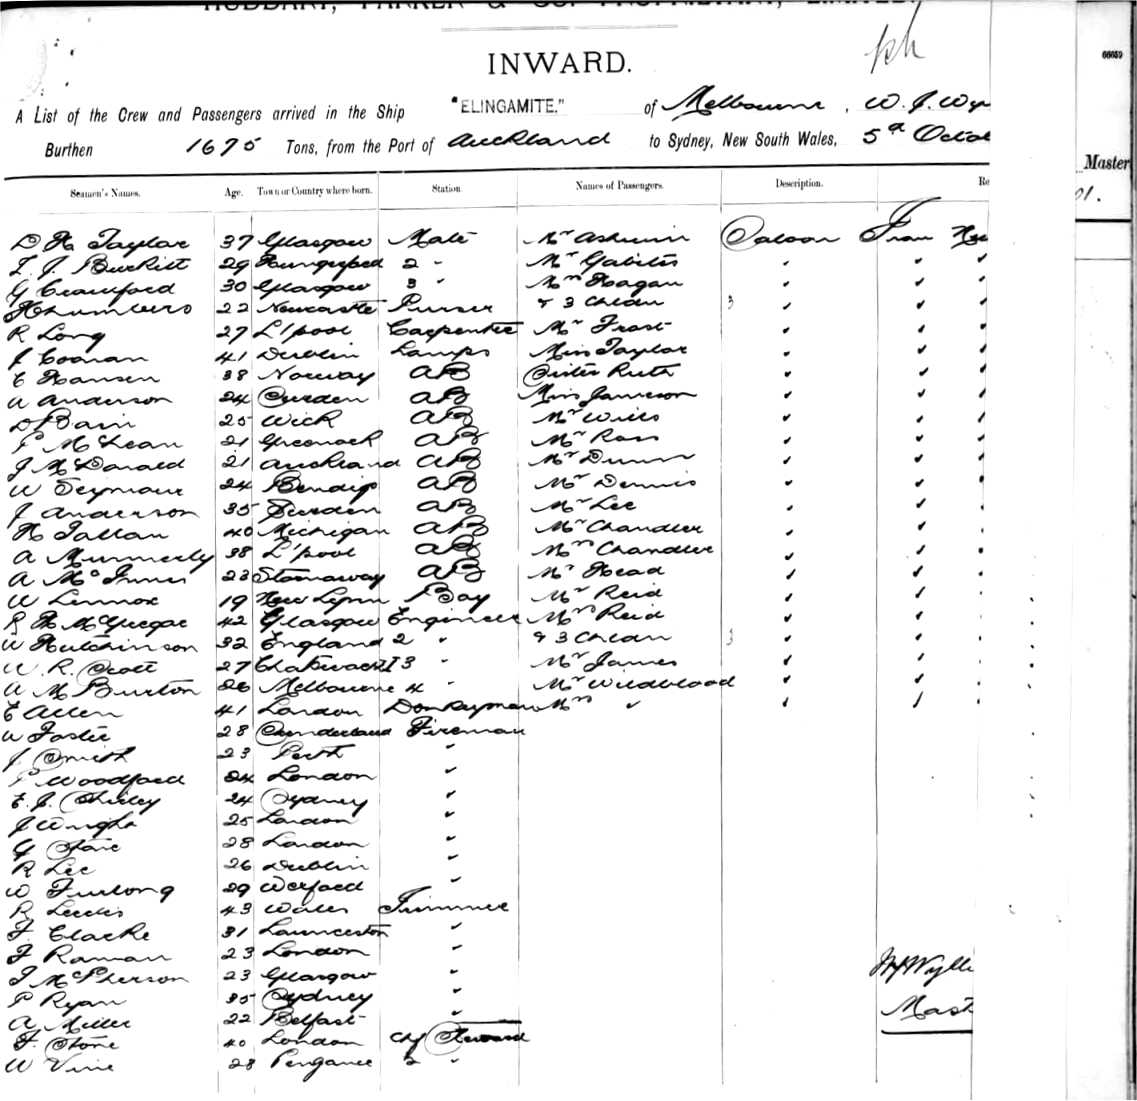 HUDDART, PARKER & CO. PROPRIETARY, LIMITED
INWARD.
66659
A List of the Crew and Passengers arrived in the Ship "ELINGAMITE." of Melbourne, W. J. Wy
Burthen 1675 Tons, from the Port of Auckland to Sydney, New South Wales, 5th Octob
Master
01.
Seamen's Names. Age. Town or Country where born. Station Names of Passengers. Description. Re
D H Taylor 37 Glasgow Mate Mr Ashwin Saloon From
T. J. Burkitt 29 Hungerford 2 " Mr
G Crawford 30 Glasgow 3 " Mrs Hagan
22 Newcastle Purser & 3 Chldn 3
R Long 27 L'pool Carpenter Mr Frost
J Coonan 41 Dublin Lamps Miss Taylor
C Hansen 38 Norway AB Sister Ruth
A Anderson 24 Sweden AB Miss Jameson
D Bain 25 Wick AB Mr Wills
P McLean 21 Greenock AB Mr Ross
J McDonald 21 Auckland AB Mr Dunn
W Seymour 24 Bendigo AB Mr Dennis
J Anderson 35 Sweden AB Mr Lee
H Tallan 40 Michigan AB Mr Chandler
A Mummerly 38 L'pool AB Mrs Chandler
A McInnes 23 Stornaway AB Mr Head
W Lennox 19 New Lynn Boy Mr Reid
R H McGregor 42 Glasgow Engineer Mrs Reid
W Hutchinson 32 England 2 " & 3 Chldn 3
W. R. Scott 27 3 " Mr James
A M Burton 26 Melbourne 4 " Mr Wildblood
E Allen 41 London Donkeyman Mrs "
W Foster 28 Sunderland Fireman
J Smith 23 Perth "
P Woodford 24 London "
E. J. Shirley 24 Sydney "
J Wright 25 London "
G 28 London "
R Lee 26 Dublin "
W Furlong 29 Wexford "
R 43 Wales Trimmer
F Clarke 31 Launceston "
F Raman 23 London "
J McPherson 23 Glasgow "
P Ryan 35 Sydney "
A Miller 22 Belfast "
F. Stone 40 London Chf Steward
W Vine 28 Penzance 2 "
Mast